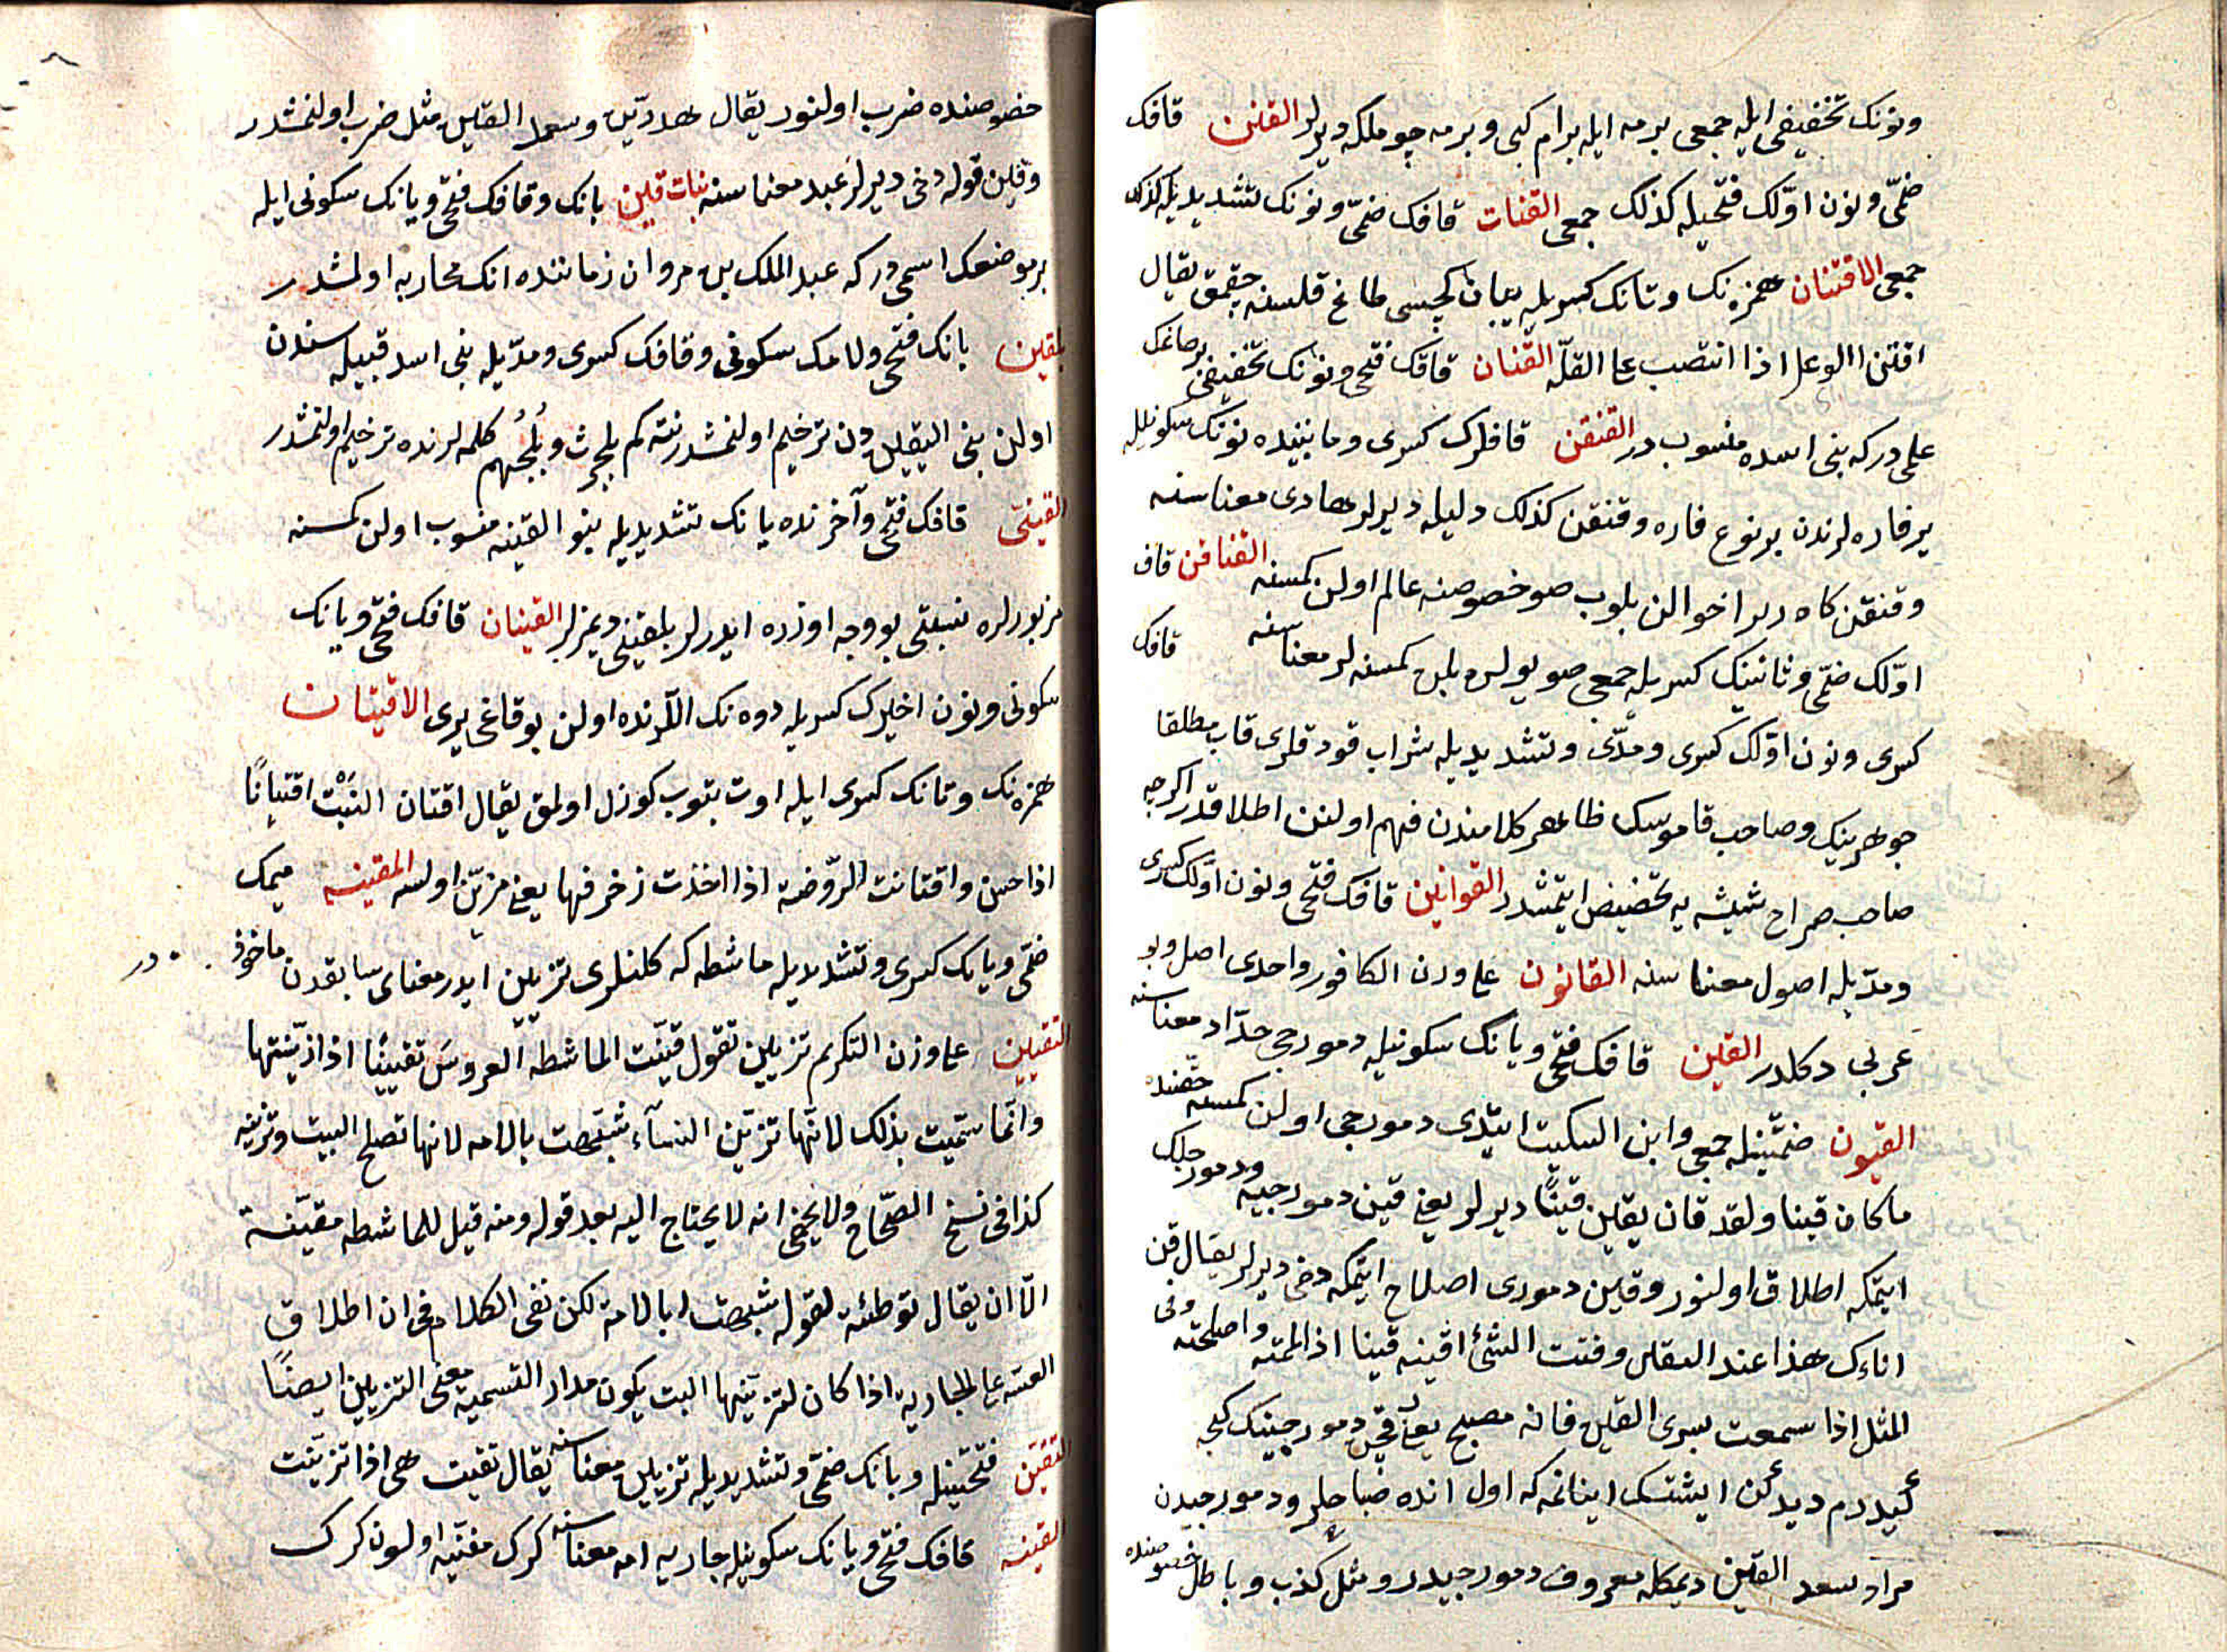 ونونک تخفیفی ایله جمعی برمه ایله برام کبی وبرمه چوملکه دیرلر القنن قافک
ضمی ونون اولک فتحیله کذلک جمعی القنات قافک ضمی ونونک تشدیدیله کذلک
جمعی الاقتنان همزه نک وتانک کسریله یبان کچیسی طاغ قلسنه چقمق یقال
اقتن الوعل اذا انتصب علی القلّه القنان قافک فتحی ونونک تخفیفی برطاغک
علمی در که بنی اسده منسوب در القنقن قافلرک کسری ومابینده نونک سکونیله
بر فاره لرندن بر نوع فاره وقنقن کذلک دلیله دیرلر هادی معناسنه
وقنقن کاه در احوالن بلوب صو خصوصنه عالم اولن کمسنه القناقن قاف
اولک ضمی وثانینک کسریله جمعی صو یولن بلن کمسنه لر معناسنه قافک
کسری ونون اولک کسری ومدّی وتشدیدیله شراب قودقلری قاب مطلقا
جوهرینک وصاحب قاموسک ظاهر کلامندن فهم اولنن اطلاقدر اکرچه
صاحب صراح شیشه یه تخصیص ایتمشدر القوانین قافک فتحی ونون اولک کسری
ومدّیله اصول معناسنه القانون علی وزن الکافور واحدی اصل وبو
عربی دکلدر القین قافک فتحی ویانک سکونیله دمورجی حدّاد معناسنه
القیون ضمّتینله جمعی وابن السکیت ایتدی دمورجی اولن کمسنه حقنده
ماکان قینا ولقد قان یقین قینًا دیرلر یعنی قین دمورجییه ودمورجیلک
ایتمکه اطلاق اولنور وقین دموری اصلاح ایتمکه دخی دیرلر یقال قن
اناءک هذا عند القین وقنت الشئ اقینه قینا اذا لممته واصلحته وفی
المثل اذا سمعت بسری القین فانه مصبح یعنی قچن دمورجینک کیجه
کیدردم دیدکن ایشتسک اینانمه که اول انده صباحلر ودمورجیدن
مراد سعد القین دیمکله معروف دمورجیدر ومثل کذب وباطل خصوصنده
خصوصنده ضرب اولنور یقال دهدرّین وسعد القین مثل ضرب اولنمشدر
وقین قوله دخی دیرلر عبد معناسنه بنات قین بانک وقافک فتحی ویانک سکونی ایله
بر موضعک اسمی در که عبد الملک بن مروان زماننده انک محاربه اولمشدر
بلقین بانک فتحی ولامک سکونی وقافک کسری ومدّیله بنی اسد قبیله سندن
اولن بنی القین دن ترخیم اولنمشدر نته کم بلحرث وبلجهم کلمه لرنده ترخیم اولنمشدر
القینی قافک فتحی وآخرنده یانک تشدیدیله بنو القینه منسوب اولن کمسنه
مزبورلره نسبتی بو وجه اوزره ایدرلر بلقینی دیمزلر القینان قافک فتحی ویانک
سکونی ونون اخیرک کسریله دوه نک اللرنده اولن بوقاغی یری الاقتیان
همزه نک وتانک کسری ایله اوت بتوب کوزل اولمق یقال اقتان النبت اقتیانًا
اذا حسن واقتانت الروضة اذا اخذت زخرفها یعنی مزیّن اولسه المقینه میمک
ضمی ویانک کسری وتشدیدیله ماشطه که کلنلری تزیین ایدر معنای سابقدن ماخوذ در
التقیین علی وزن التکریم تزیین تقول قینت الماشطه العروس تقیینًا اذا زینتها
وانما سمّیت بذلک لانها تزین النساء شبهت بالامه لانها تصلح البیت وتزینه
کذا فی نسخ الصحاح ولا یخفی انه لا یحتاج الیه بعد قوله ومنه قیل للماشطه مقینة
الّا ان یقال توطئة لقوله شبهت بالامة لکن نفی الکلام فی ان اطلاق
القینه علی الجاریه اذا کان لتزینها البیت یکون مدار التسمیه معنی التزیین ایضًا
التقین فتحتینله ویانک ضمی وتشدیدیله تزیین معناسنه یقال تقینت هی اذا تزینت
القینه قافک فتحی ویانک سکونیله جاریه امه معناسنه کرک مغنیه اولسون کرک